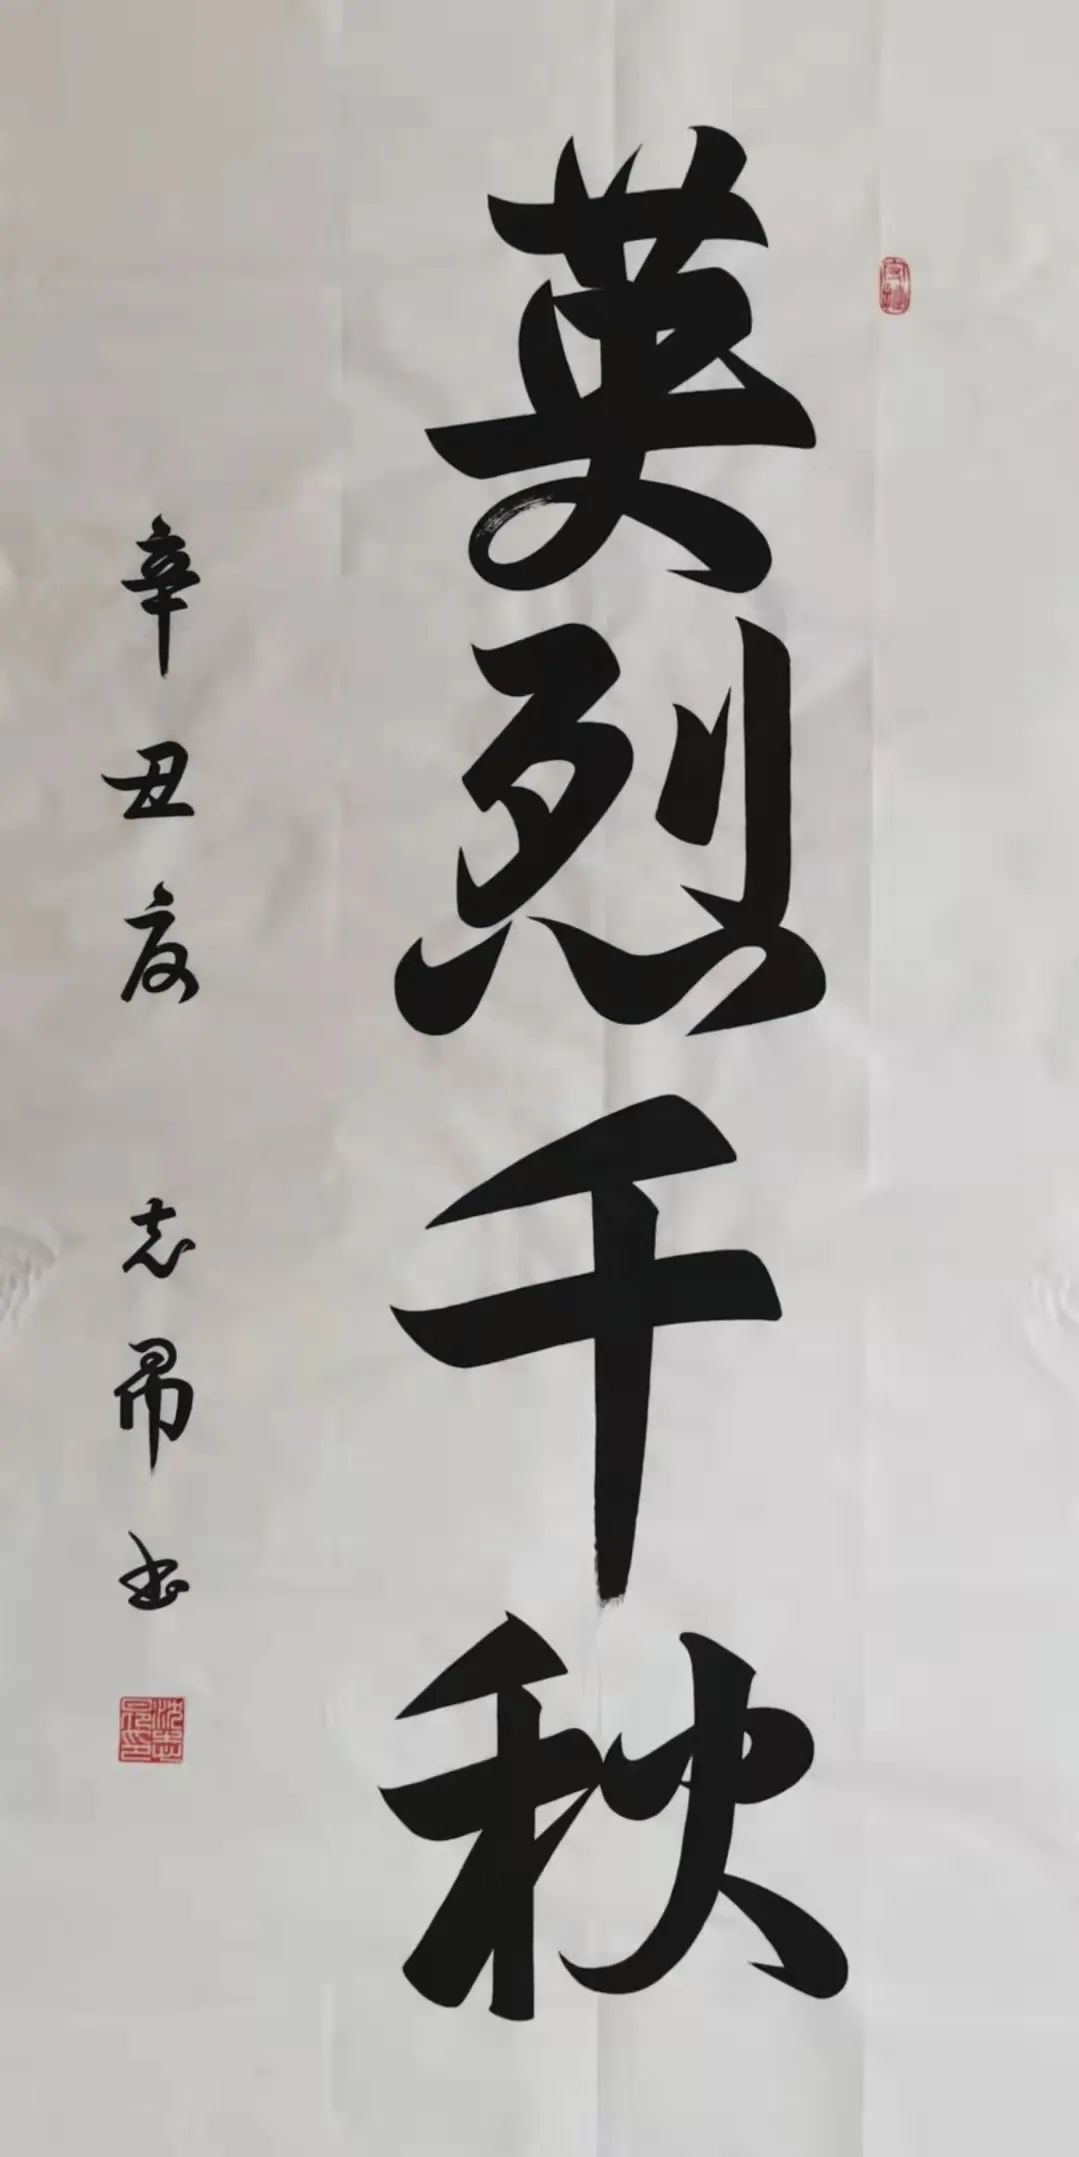 英烈千秋
辛丑夏 志昂书